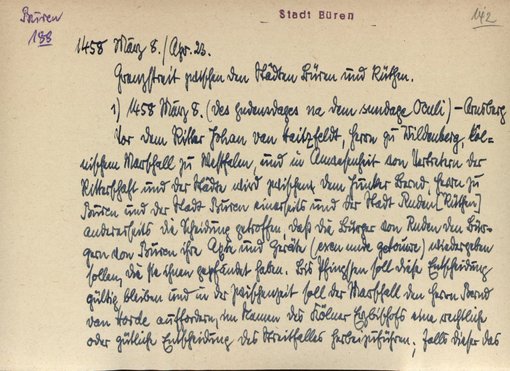 Büren
188
Stadt Büren
1/2
1458 März 8./Apr. 23.
Grenzstreit zwischen den Städten Büren und Rüthen.
1) 1458 März 8. (des gudensdages na dem sundage Oculi) - Arnsberg
Vor dem Ritter Johan van Haitzfeldt, Herrn zu Wildenberg, Köl-
nischem Marschall zu Westfalen, und in Anwesenheit von Vertretern der
Ritterschaft und der Städte wird zwischen dem Junker Bernd, Herrn zu
Büren und der Stadt Büren einerseits und der Stadt Ruden [Rüthen]
andererseits die Scheidung getroffen, daß die Bürger von Ruden den Bür-
gern von Büren ihre Äxte und Geräte (exen unde getouwe) wiedergeben
sollen, die sie ihnen gepfändet haben. Bis Pfingsten soll diese Entscheidung
gültig bleiben und in der Zwischenzeit soll der Marschall den Herrn Bernd
van Horde auffordern, im Namen des Kölner Erzbischofs eine rechtliche
oder gütliche Entscheidung des Streitfalles herbeizuführen; falls dieser das